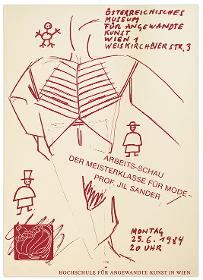 ÖSTERREICHISCHES
MUSEUM
FÜR ANGEWANDTE
KUNST
WIEN 1
WEISKIRCHNERSTR. 3
ARBEITS-SCHAU
DER MEISTERKLASSE FÜR MODE
PROF. JIL SANDER
MONTAG
25.6.1984
20 UHR
HOCHSCHULE FÜR ANGEWANDTE KUNST IN WIEN